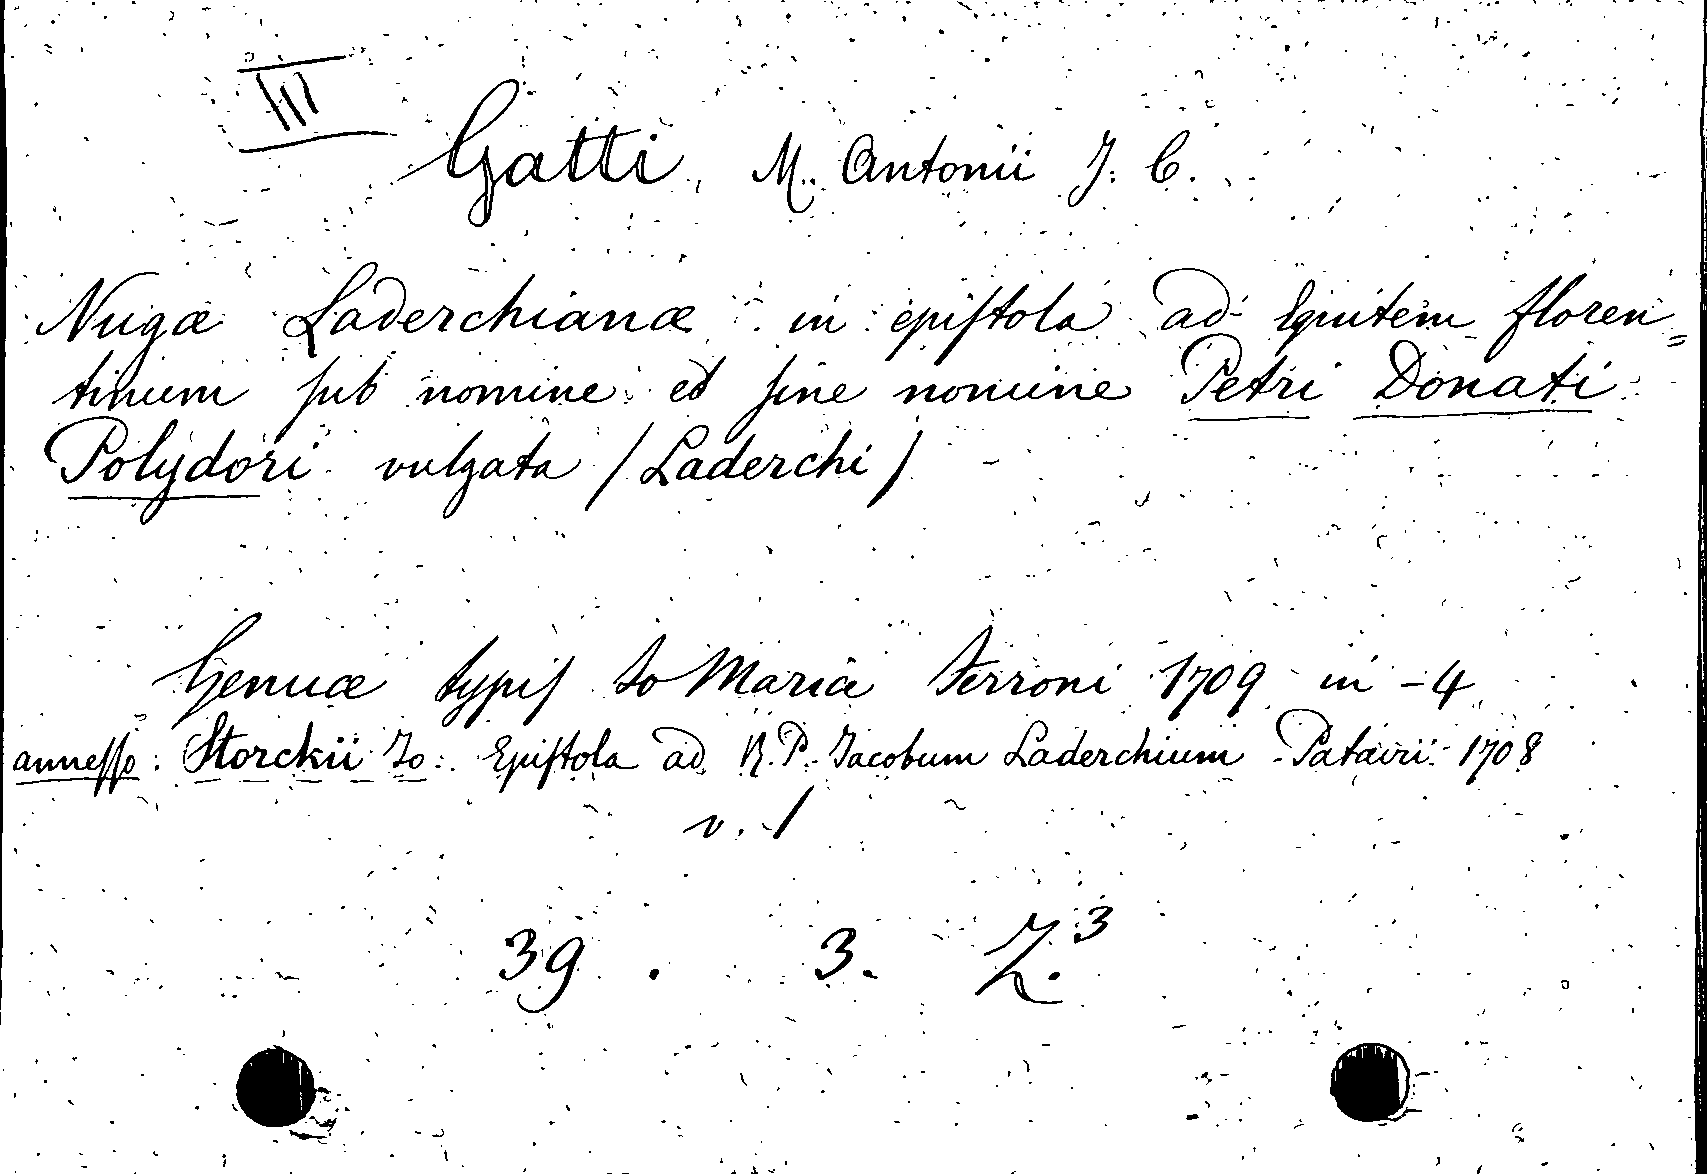 III
Gatti, M. Antonii J. C.
Nugæ Laderchianæ in epiſtola ad Equitem floren=
tinum ſub nomine et ſine nomine Petri Donati
Polydori vulgata (Laderchi)
Genuæ typiſ Jo Mariæ Ferroni 1709 in -4
anneſſo: Storckii Jo: Epiſtola ad R. P. Jacobum Laderchium Patavii 1708
v. 1
39 . 3. Z.³